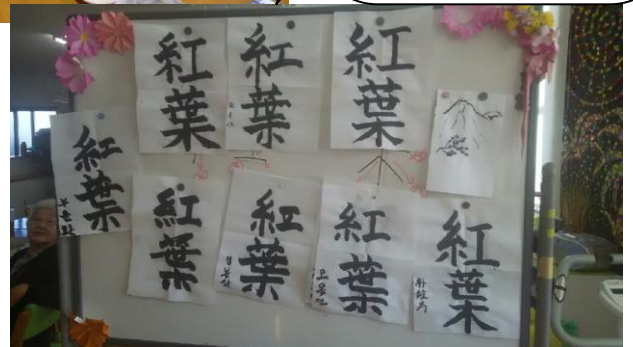 紅葉
紅葉
紅葉
紅葉
紅葉
紅葉
紅葉
紅葉